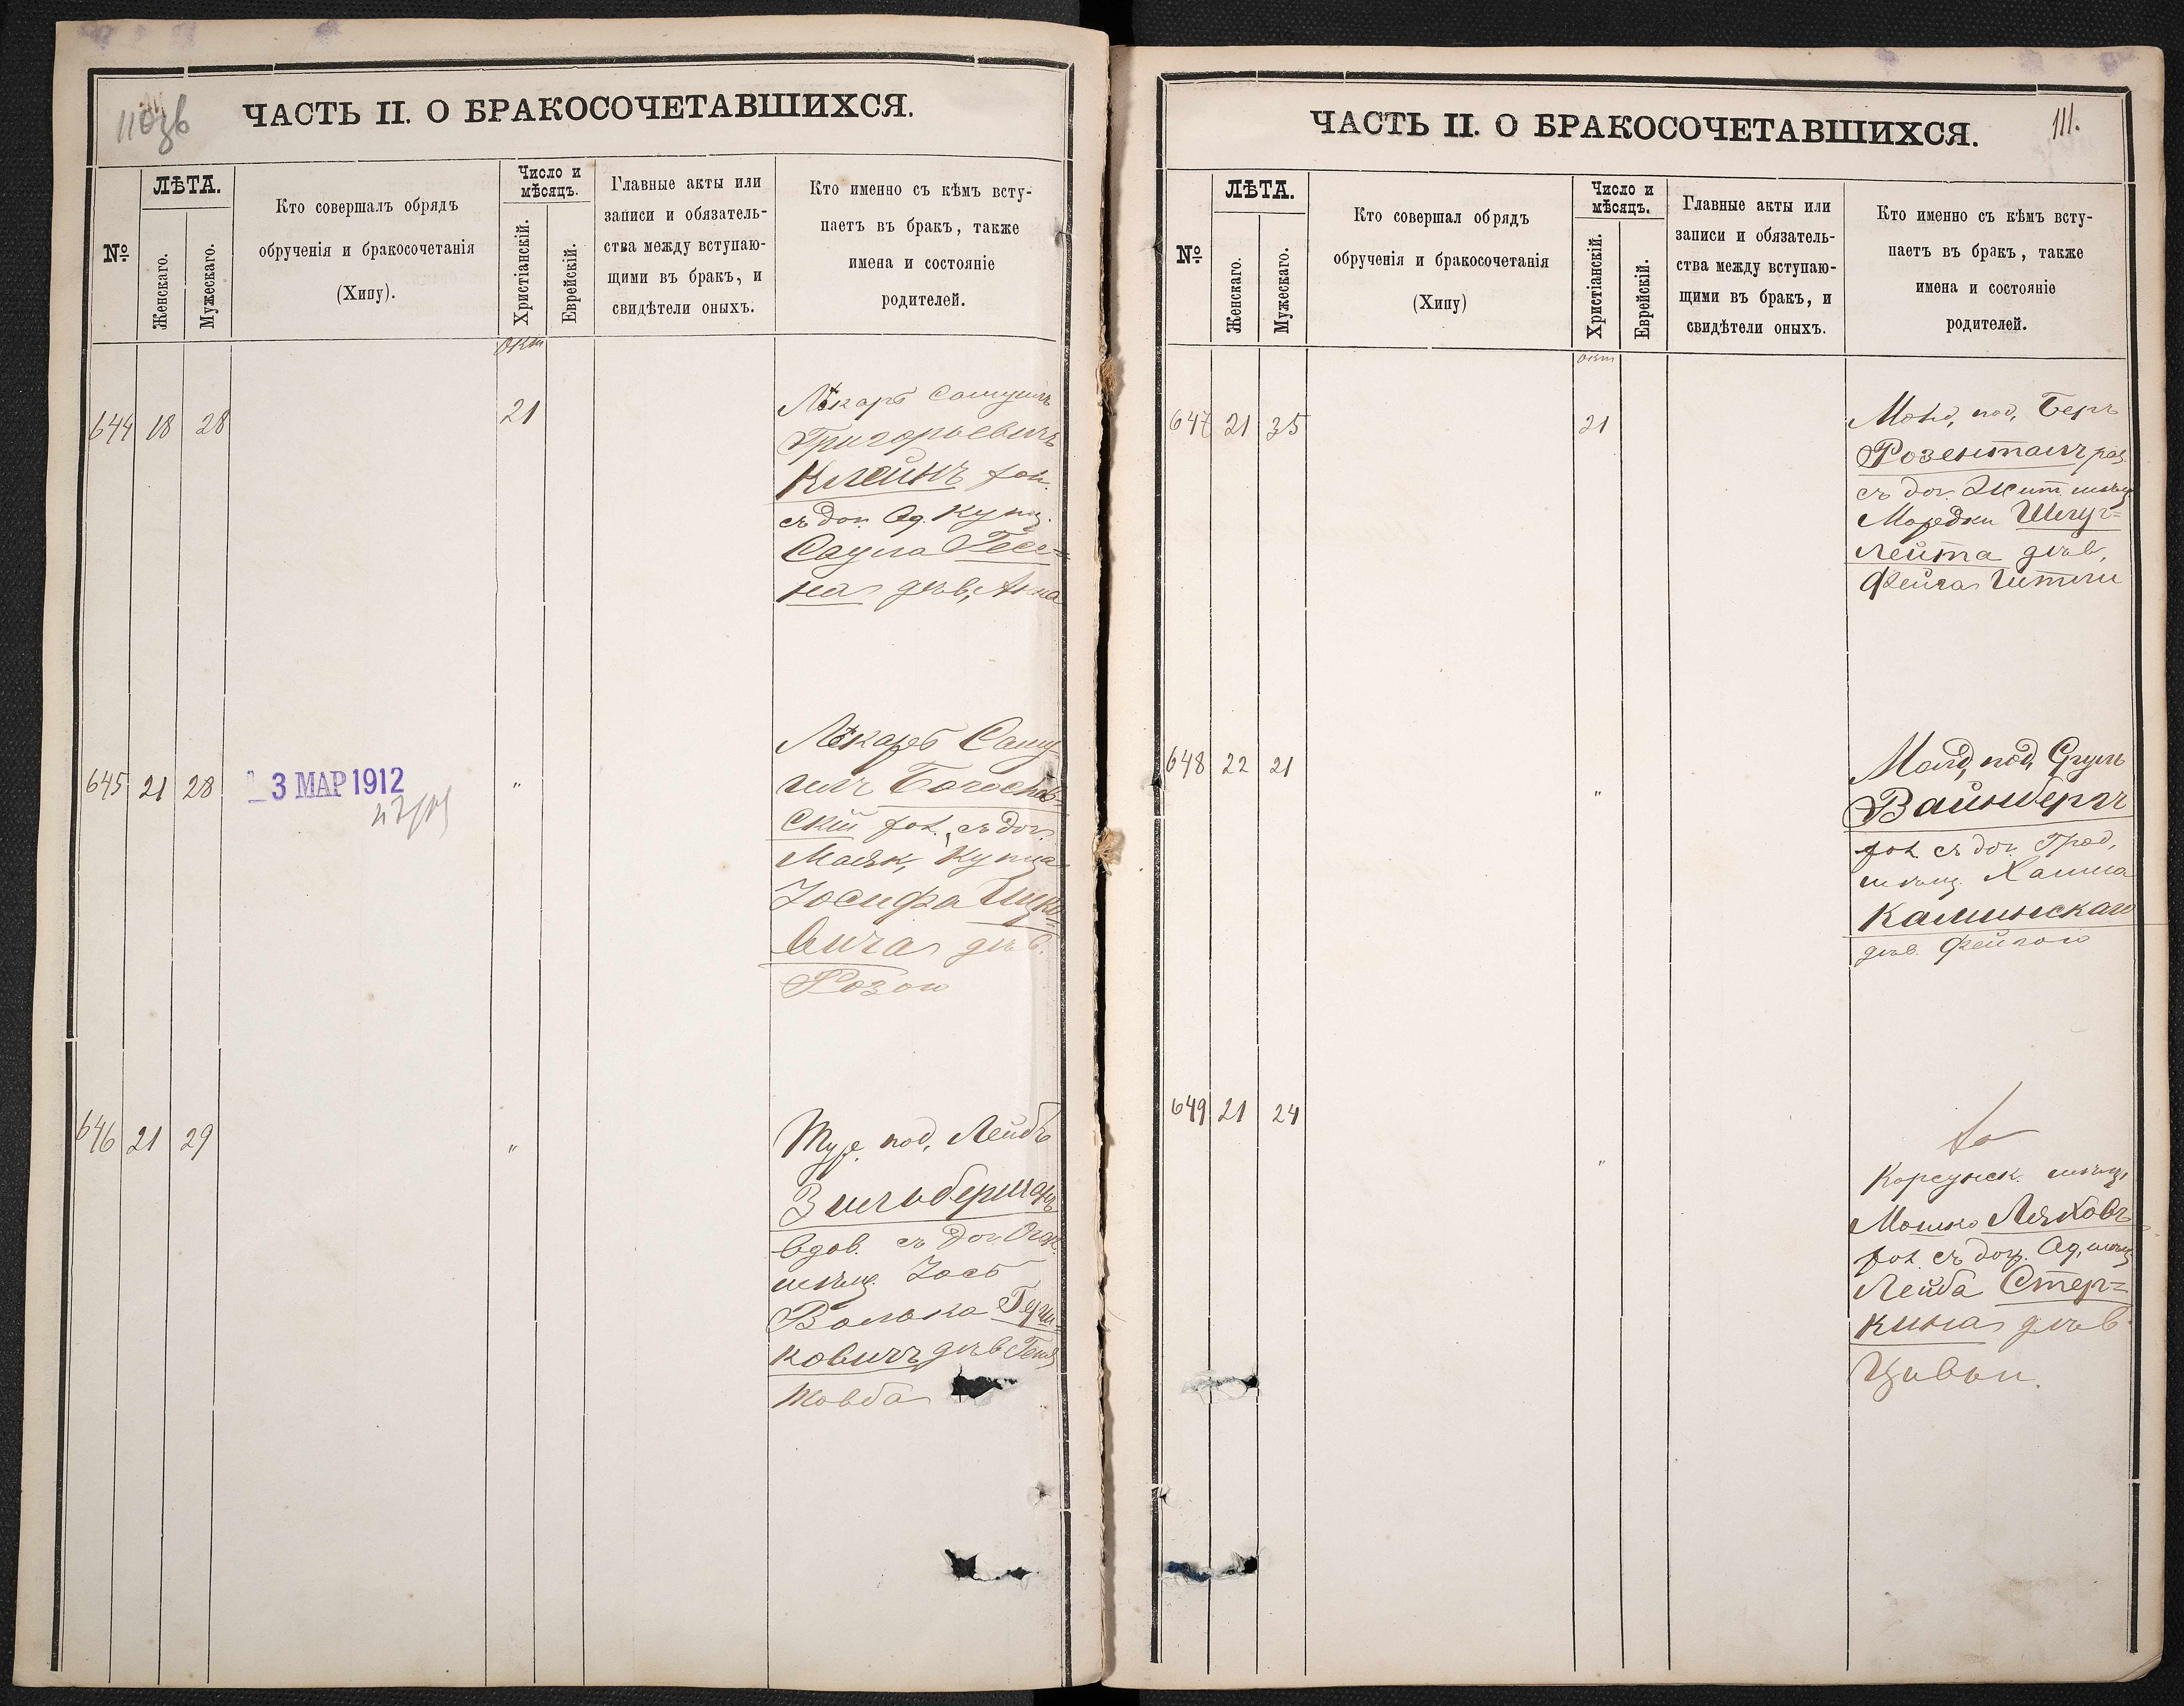 110зв
ЧАСТЬ II. О БРАКОСОЧЕТАВШИХСЯ.
№
ЛѢТА.
Женскаго.
Мужескаго.
Кто совершалъ обрядъ
обрученія и бракосочетанія
(Хипу).
Число и
мѣсяцъ.
Христіанскій.
Еврейскій.
Главные акты или
записи и обязатель-
ства между вступаю-
щими въ бракъ, и
свидѣтели оныхъ.
Кто именно съ кѣмъ всту-
паетъ въ бракъ, также
имена и состояніе
родителей.
окт
644 18 28 21
Лѣкарь Самуилъ
Григорьевичъ
Клейнъ хол.
съ доч. Од. купц.
Саула Гесе-
на дѣв, Анна
645 21 28 3 МАР 1912 "
Лѣкарь Саму-
илъ Богослов-
скій хол. съ доч.
Маяк, купца
Іосифа Ицко-
вича дѣв.
Розою
646 21 29 "
Тур. под, Лейбъ
Зильбершаръ
вдов. съ доч.
мѣщ. Іось
Волька Герш-
ковичъ дѣв
Товба
111.
ЧАСТЬ II. О БРАКОСОЧЕТАВШИХСЯ.
№
ЛѢТА.
Женскаго.
Мужескаго.
Кто совершал обрядъ
обрученія и бракосочетанія
(Хипу)
Число и
мѣсяцъ.
Христіанскій.
Еврейскій.
Главные акты или
записи и обязатель-
ства между вступаю-
щими въ бракъ, и
свидѣтели оныхъ.
Кто именно съ кѣмъ всту-
паетъ въ бракъ, также
имена и состояніе
родителей.
окт
647 21 35 21
под, Беръ
Розенталъ раз.
съ доч. Жит. мѣщ
Мордки Шлуг-
лейта дѣв,
Фейга Гитли
648 22 21 "
под, Сруль
Вайнбергъ
хол. съ доч. Грод,
мѣщ. Хаима
Калинскаго
дѣв. Фейгою
649 21 24 "
Корсунск. мѣщ,
Мошко Ляховъ
хол. съ доч. Од, мѣщ
Лейба Стер-
кина дѣв.
Цивьи.